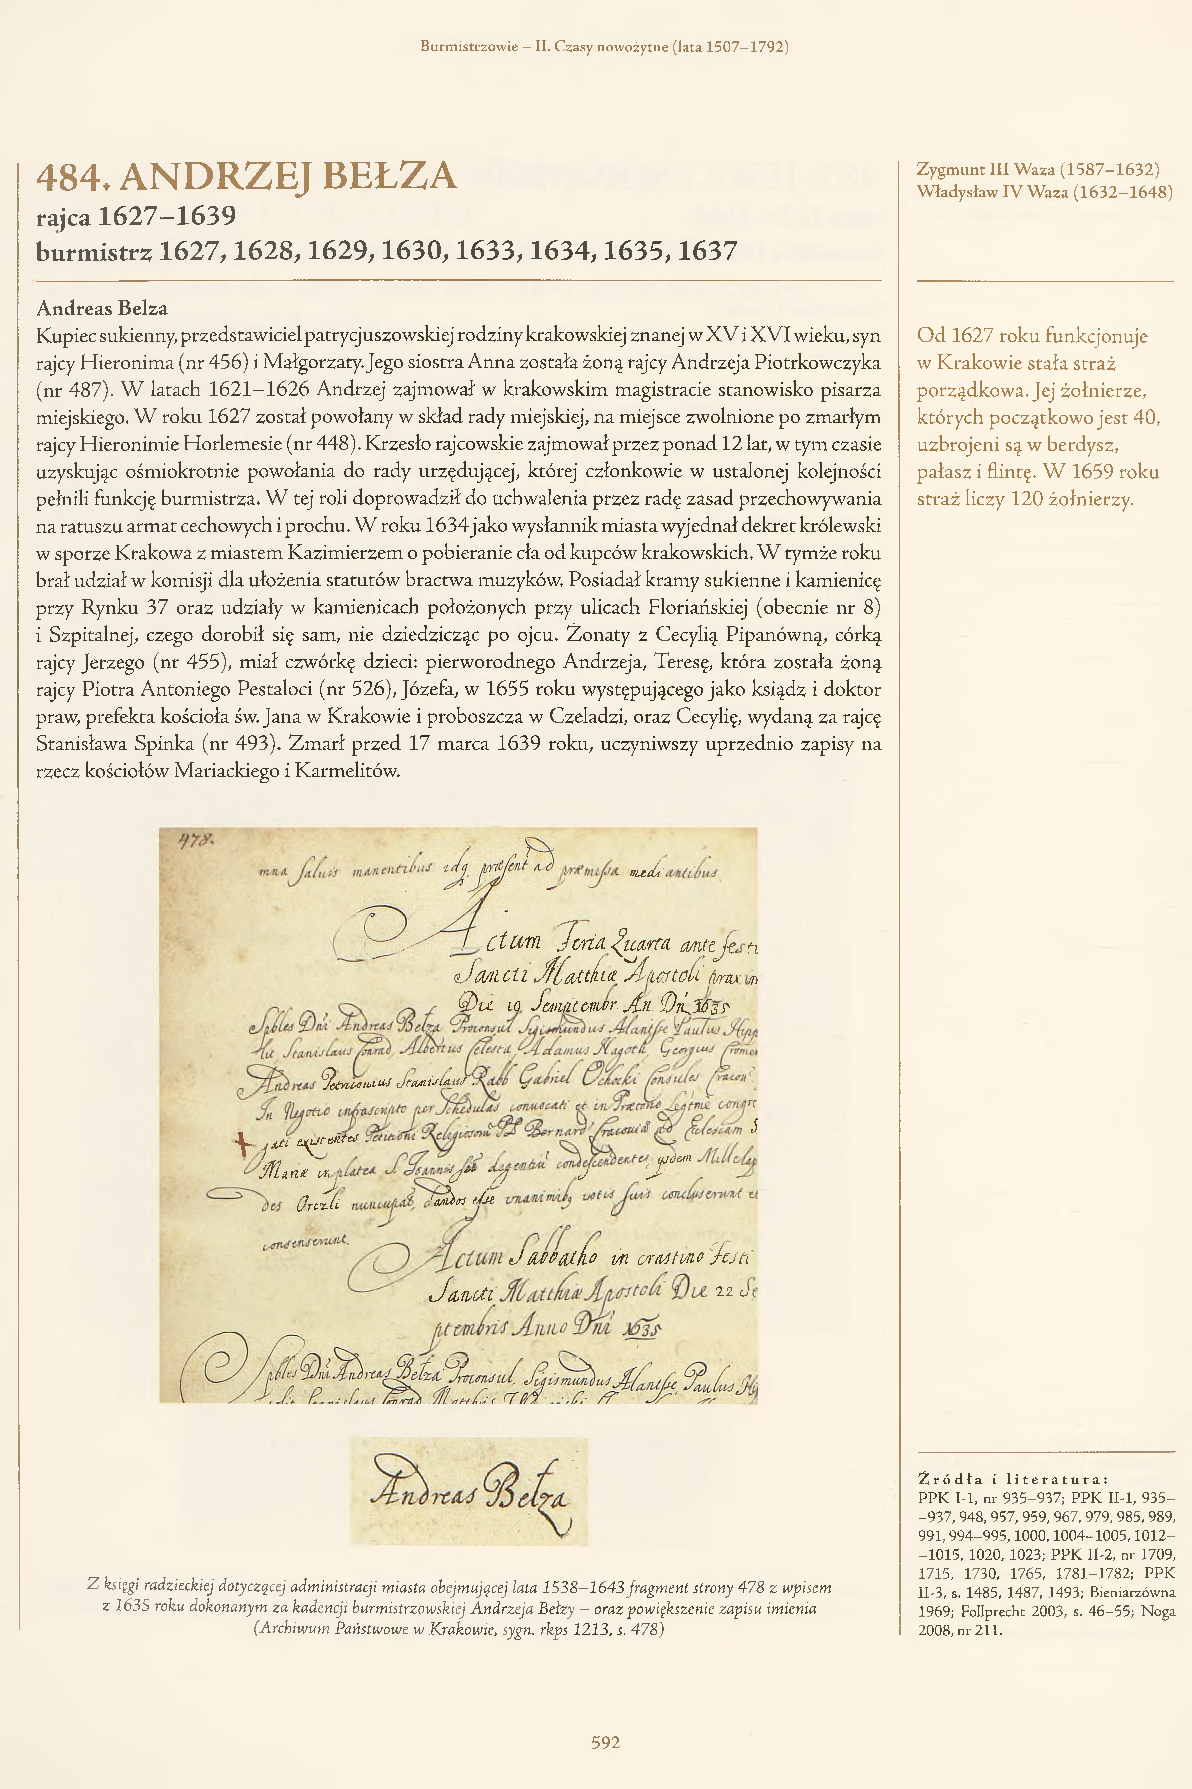 Burmistrzowie – II. Czasy nowożytne (lata 1507–1792)
484. ANDRZEJ BEŁZA
rajca 1627–1639
burmistrz 1627, 1628, 1629, 1630, 1633, 1634, 1635, 1637
Andreas Belza
Kupiec sukienny, przedstawiciel patrycjuszowskiej rodziny krakowskiej znanej w XV i XVI wieku, syn
rajcy Hieronima (nr 456) i Małgorzaty. Jego siostra Anna została żoną rajcy Andrzeja Piotrkowczyka
(nr 487). W latach 1621–1626 Andrzej zajmował w krakowskim magistracie stanowisko pisarza
miejskiego. W roku 1627 został powołany w skład rady miejskiej, na miejsce zwolnione po zmarłym
rajcy Hieronimie Horlemesie (nr 448). Krzesło rajcowskie zajmował przez ponad 12 lat, w tym czasie
uzyskując ośmiokrotnie powołania do rady urzędującej, której członkowie w ustalonej kolejności
pełnili funkcję burmistrza. W tej roli doprowadził do uchwalenia przez radę zasad przechowywania
na ratuszu armat cechowych i prochu. W roku 1634 jako wysłannik miasta wyjednał dekret królewski
w sporze Krakowa z miastem Kazimierzem o pobieranie cła od kupców krakowskich. W tymże roku
brał udział w komisji dla ułożenia statutów bractwa muzyków. Posiadał kramy sukienne i kamienicę
przy Rynku 37 oraz udziały w kamienicach położonych przy ulicach Floriańskiej (obecnie nr 8)
i Szpitalnej, czego dorobił się sam, nie dziedzicząc po ojcu. Żonaty z Cecylią Pipanówną, córką
rajcy Jerzego (nr 455), miał czwórkę dzieci: pierworodnego Andrzeja, Teresę, która została żoną
rajcy Piotra Antoniego Pestaloci (nr 526), Józefa, w 1655 roku występującego jako ksiądz i doktor
praw, prefekta kościoła św. Jana w Krakowie i proboszcza w Czeladzi, oraz Cecylię, wydaną za rajcę
Stanisława Spinka (nr 493). Zmarł przed 17 marca 1639 roku, uczyniwszy uprzednio zapisy na
rzecz kościołów Mariackiego i Karmelitów.
Zygmunt III Waza (1587–1632)
Władysław IV Waza (1632–1648)
Od 1627 roku funkcjonuje
w Krakowie stała straż
porządkowa. Jej żołnierze,
których początkowo jest 40,
uzbrojeni są w berdysz,
pałasz i flintę. W 1659 roku
straż liczy 120 żołnierzy.
478.
manentibus præmissa mediantibus
Actum Feria Quarta ante festi
Sancti Matthiæ Apostoli
Die 19 Septembr. An. Dni 1635
Dni Andreas Bełza Proconsul Sigismundus Alantse Paulus
Stanislaus Conrad Albertus Celesta Adamus Nagoth Georgius
Andreas Petricouius Stanislaus Rabb Gabriel Ochocki Consules
In Negotio infrascripto per Schedulas conuocati et in
existentes
Mariæ in platea S Joannis
des Orczli dandos esse unanimibq votis suis concluserunt et
consenserunt.
Actum Sabbatho in crastino Festi
Sancti Matthiæ Apostoli Die 22 Se
ptembris Anno Dni 1635
Dni Andreas Bełza Proconsul, Sigismundus Alantse, Paulus
Andreas Bełza
Z księgi radzieckiej dotyczącej administracji miasta obejmującej lata 1538–1643 fragment strony 478 z wpisem
z 1635 roku dokonanym za kadencji burmistrzowskiej Andrzeja Bełzy – oraz powiększenie zapisu imienia
(Archiwum Państwowe w Krakowie, sygn. rkps 1213, s. 478)
Źródła i literatura:
PPK I-1, nr 935–937; PPK II-1, 935–
–937, 948, 957, 959, 967, 979, 985, 989,
991, 994–995, 1000, 1004–1005, 1012–
–1015, 1020, 1023; PPK II-2, nr 1709,
1715, 1730, 1765, 1781–1782; PPK
II-3, s. 1485, 1487, 1493; Bieniarzówna
1969; Follprecht 2003, s. 46–55; Noga
2008, nr 211.
592